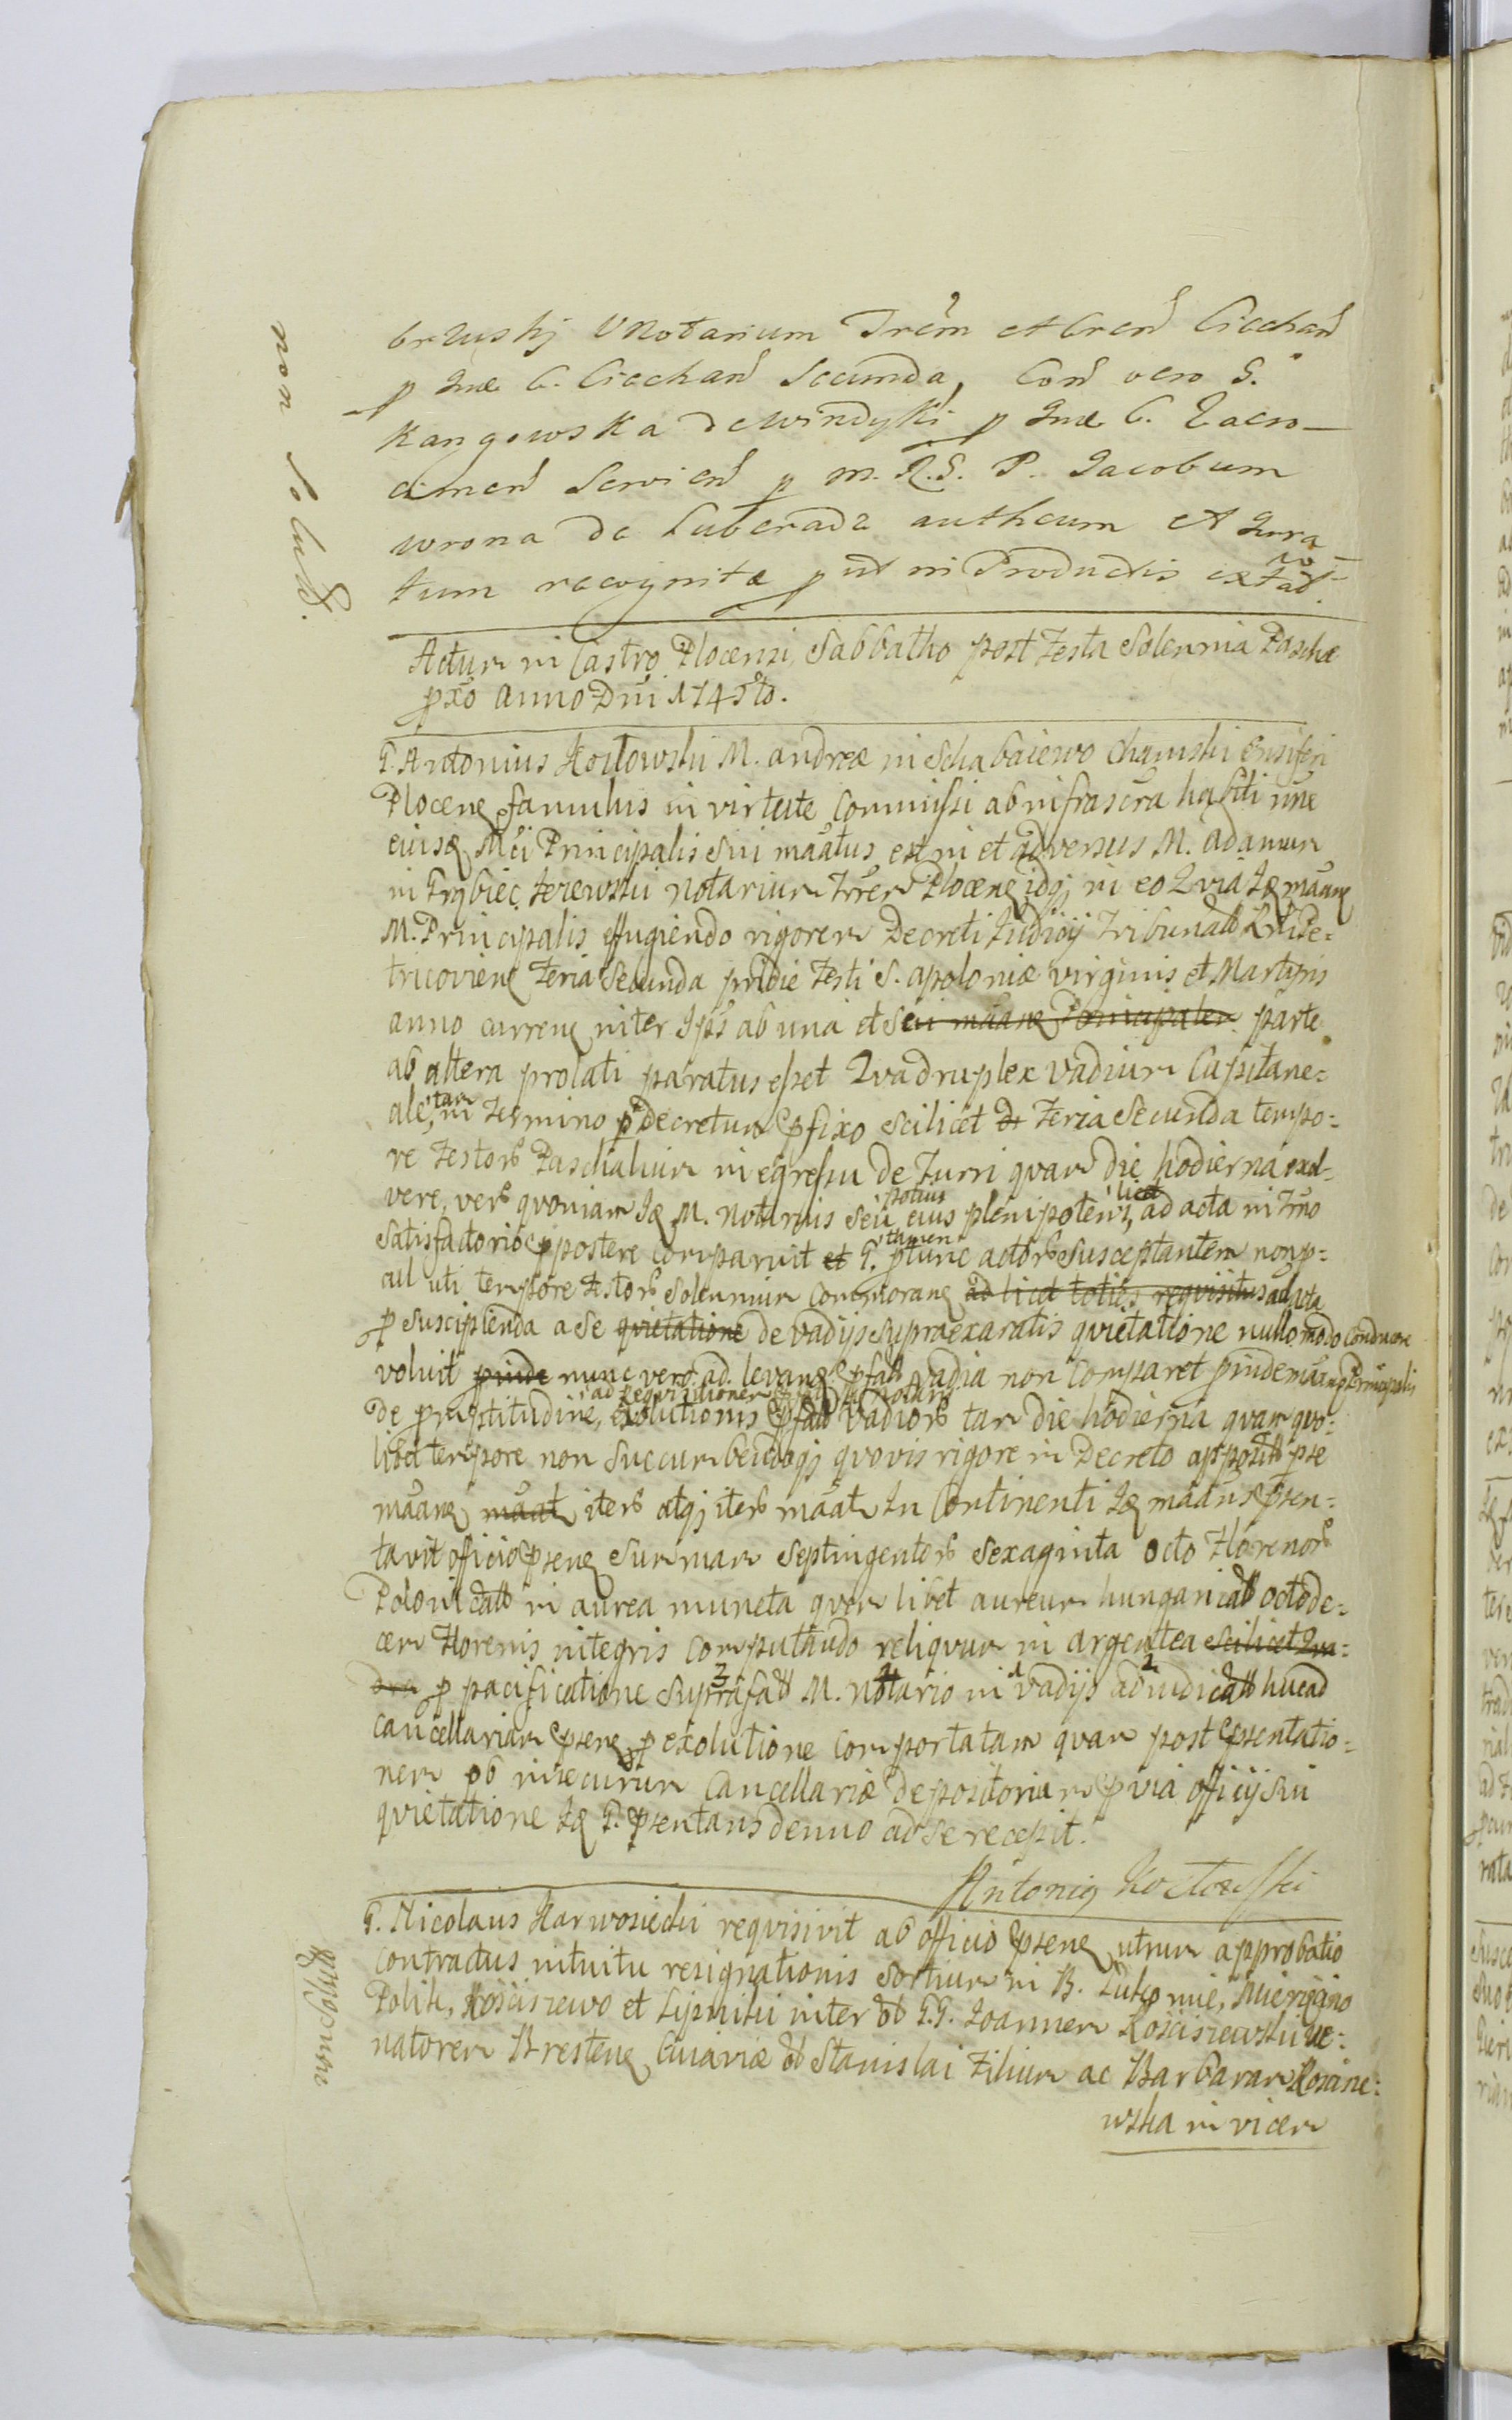 non solut.
brzuski Notarium Trem et Cren Ciechan
p Ime C. Ciechan Secunda, Con vero G.
Kangowska de Windyki p Ime C. Zacro-
cimen Servien p M. R. G. P. Jacobum
Wrona de Luberadz authcum et Jura
tum recognitæ p ut in Productis extad.
Actum in Castro Plocensi, Sabbatho post Festa Solennia Paschæ
pxo Anno Dni 1745to.
G. Antonius Kostowski M. Andreæ in Schabaiewo Chamski Ensiferi
Plocen famulus in virtute commissi ab infrascra habiti nne
eiusq Mci Principalis sui maatus est in et adversus M. Adamum
in Grębiec Jezewski Notarium Trrem Plocen idqj in eo Quia Iq maane
M. Principalis effugiendo rigorem Decreti Judicij Tribunalis Rntde=
tricovien Feria Secunda pridie Festi S. Apoloniæ virginis et Martyris
anno curren inter Ips ab una et sui maane Principalem parte
ab altera prolati paratus esset Quadruplex vadium Capitane=
ale, tam in Termino p Decretum pfixo scilicet de Feria Secunda tempo=
re Festor Paschalium in egressu de Turri quam die hodierna exol-
vere, ver quoniam Iq M. Notarius seu potius eius plenipoten, licet ad acta in Trno
satisfactorio ppostere comparuit et G. thmen ptunc actor susceptantem non p=
cul uti tempore Festor Solennium commoran ad licet toties requisitus ad acta
p suscipienda a se quietatione de vadijs supraexaratis quietatione nullo modo conducere
voluit pinde nunc vero ad levan pfatt vadia non comparet pinde maan Principalis
De promptitudine, ad requisitionem Notarij exolutionis pfatt vadior tam die hodierna quam quo=
libet tempore non succumbendoqj quovis rigore in Decreto apposit pse
maane maat iter atqj iter maat In Continenti Iq maans psen=
tavit officio psen Summam Septingentor Sexaginta octo Florenor
Polonicatt in aurea moneta quem libet aureum hungaricatt octode=
cem Florenis integris computando reliquum in argentea scilicet Qua=
dra p pacificatione suprafatt M. Notario in vadijs adiudicatt huc ad
Cancellariam psen p exolutione comportatam quam post psentatio=
nem ob insecurum Cancellariæ depositorium pvia officij sui
quietatione Iq G. psentans denuo ad se recepit.
Antonig Kostowski
G. Nicolaus Karwosiecki requisivit ab officio psen utrum approbatio
contractus intuitu resignationis sortium in B. Lukomie,
Polik, Kosciszewo et Lipniki inter G.G. Joannem Kosciszewski Ve=
natorem Bresten Cuiaviæ Stanislai Filium ac Barbaram Koscisze=
wska in vicem